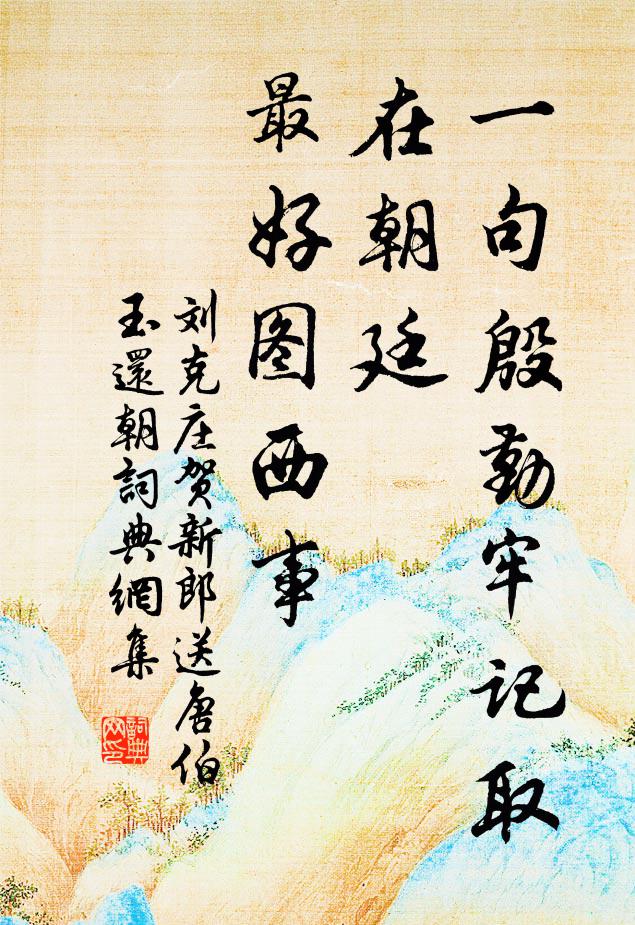 一句殷勤牢记取
在朝廷
最好图西事
刘克庄贺新郎送唐伯
玉還朝詞典網集
詞典
网印